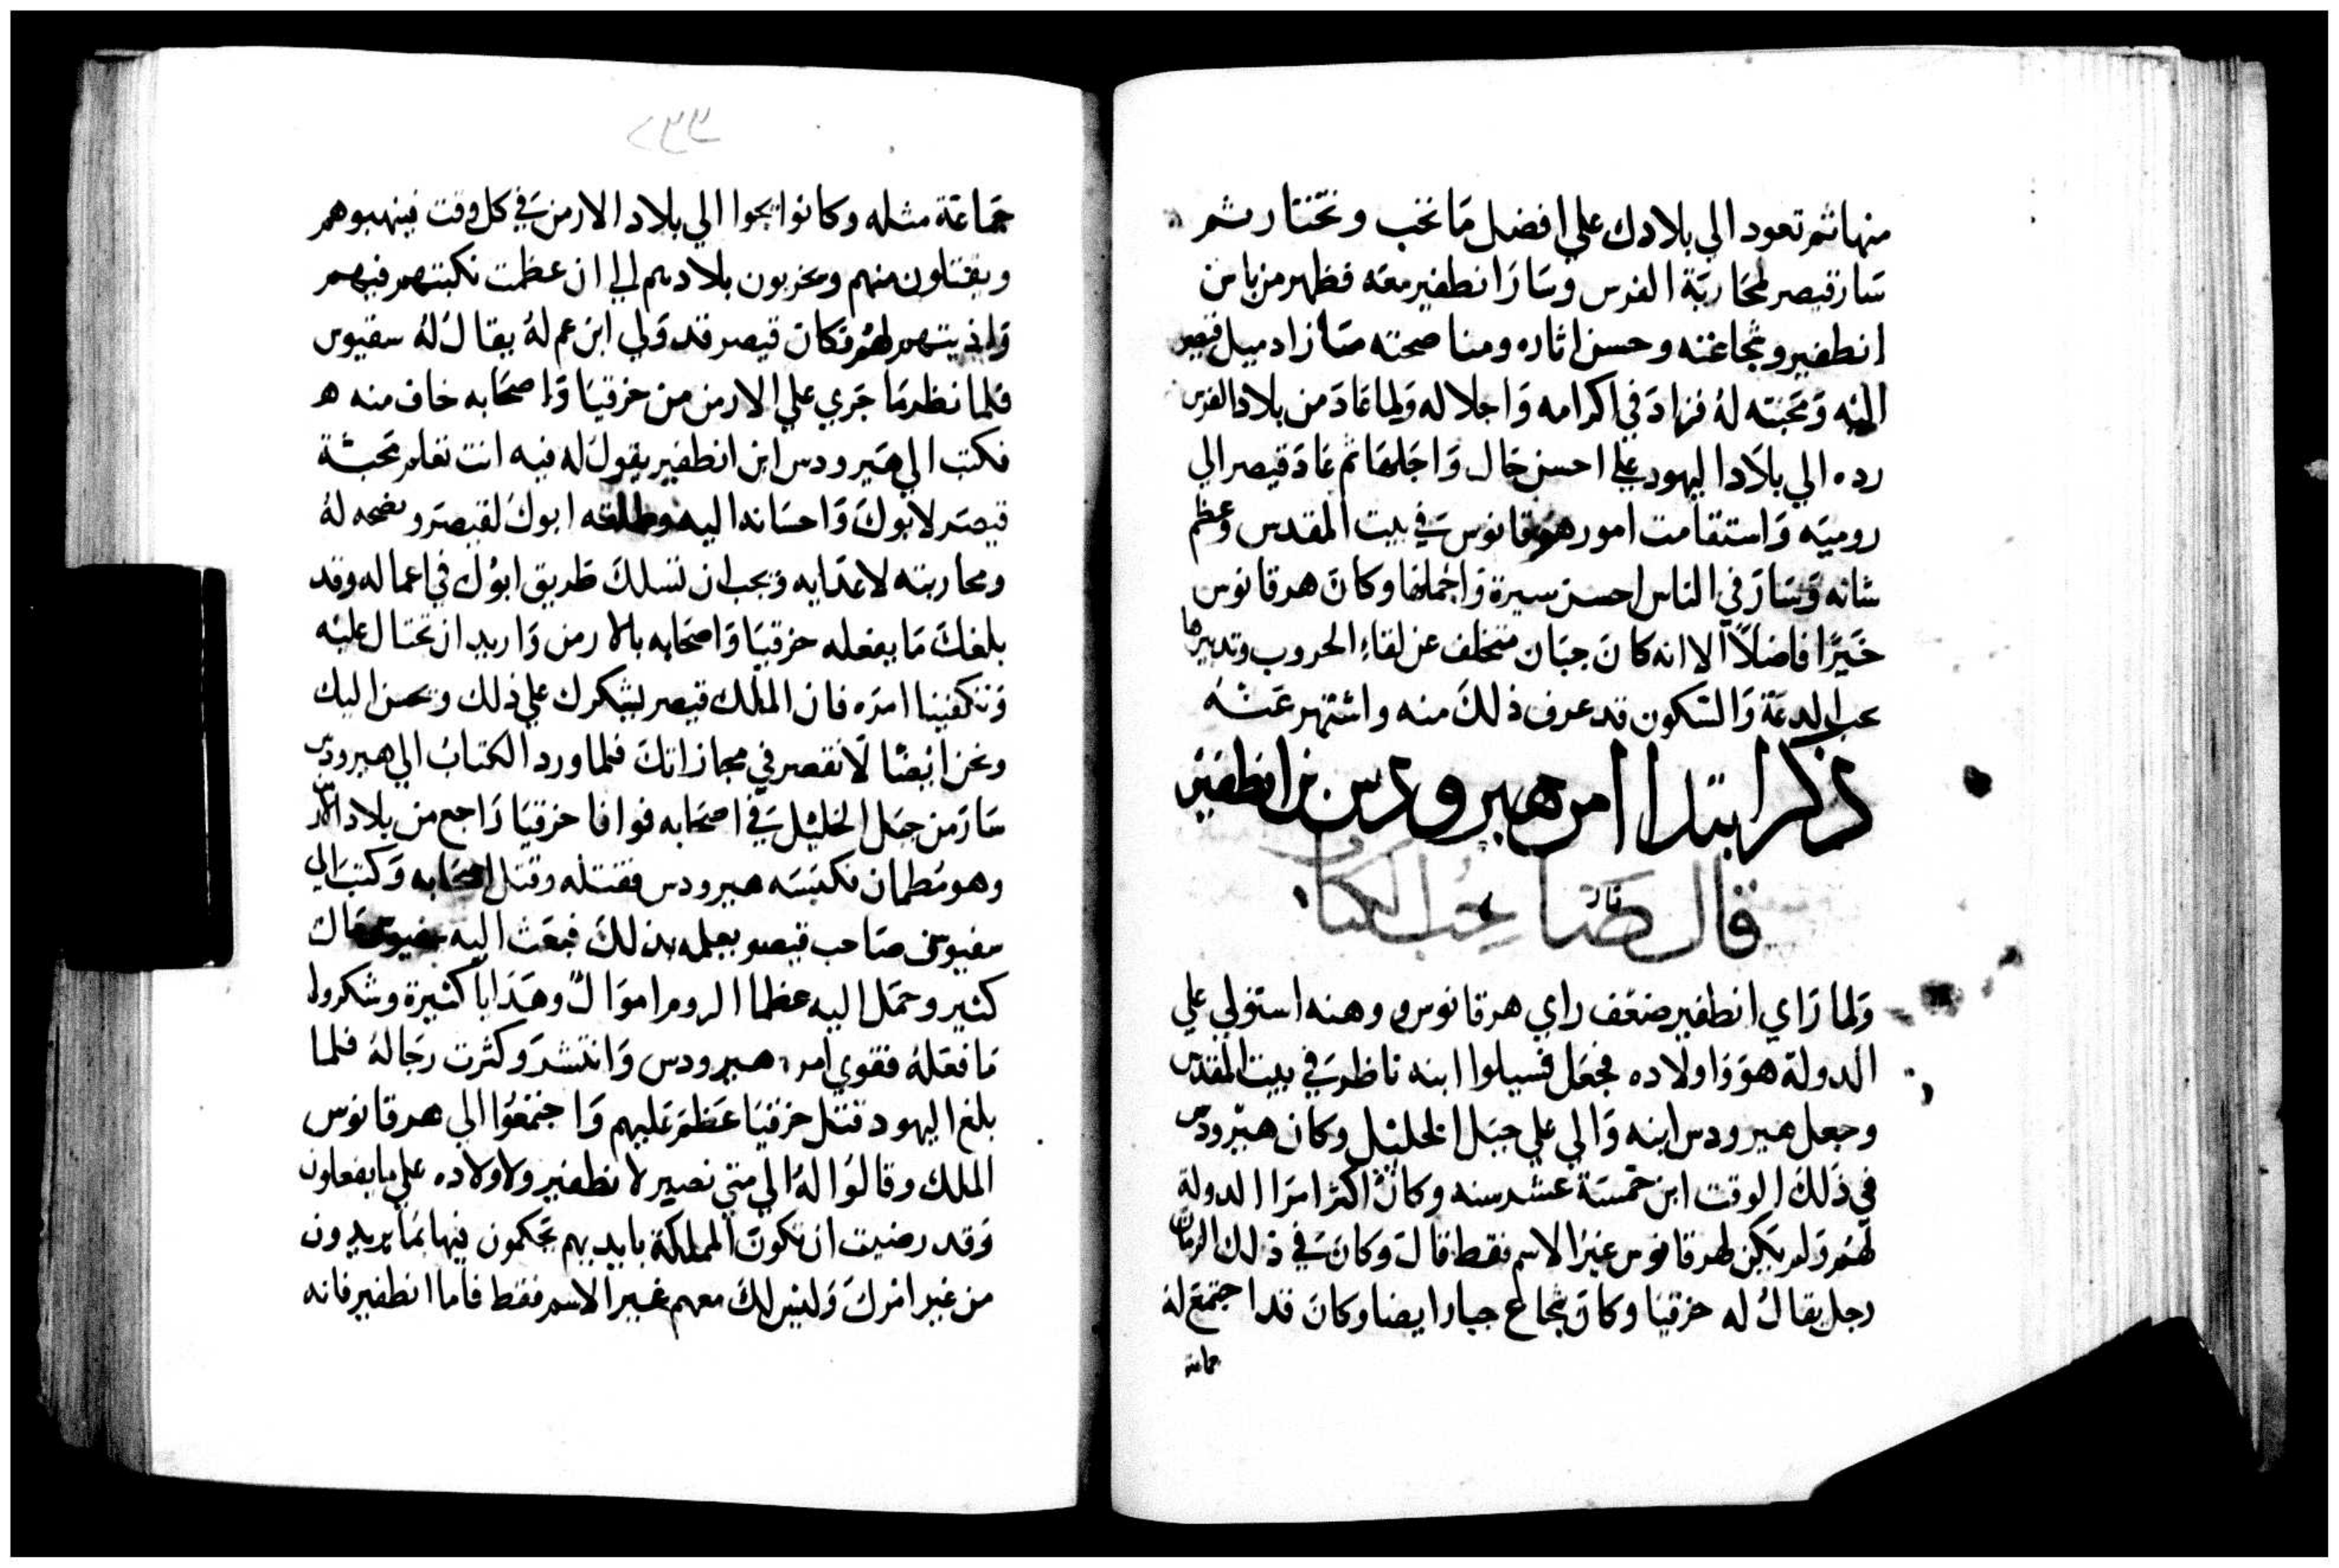 منها ثم تعود الي بلادك علي افضل ما تحب وتختار ثم
سار قيصر لمحاربة الفرس وسار انطفير معه فظهر من باس
انطفير وشجاعته وحسن اثاره ومناصحته ما زاد ميل قيصر
اليه ومحبته له فزاد في اكرامه واجلاله ولما عاد من بلاد الفرس
رده الي بلاد اليهود علي احسن حال واجلها ثم عاد قيصر الي
روميه واستقامت امور هرقانوس في بيت المقدس وعظم
شانه وسار في الناس احسن سيرة واجملها وكان هرقانوس
خيرًا فاضلاً الا انه كان جبان متخلف عن لقاء الحروب وتدبيرها
يحب الدعة والسكون قد عرف ذلك منه واشتهر عنه
ذكر ابتدا امر هيرودس بن انطفير
قال صاحب الكتاب
ولما راي انطفير ضعف راي هرقانوس ووهنه استولي علي
الدولة هو واولاده فجعل فسيلوا ابنه ناظر في بيت المقدس
وجعل هيرودس ابنه والي علي جبل الخليل وكان هيرودس
في ذلك الوقت ابن خمسة عشر سنه وكان اكثر امر الدولة
لهم ولم يكن لهرقانوس غير الاسم فقط قال وكان في ذلك الزمان
رجل يقال له حزقيا وكان شجاع جبار ايضا وكان قد اجتمع له
جماعة
٢٣٣
جماعة مثله وكانوا يجوا الي بلاد الارمن في كل وقت فينهبوهم
ويقتلون منهم ويخربون بلادهم الي ان عظمت نكبتهم فيهم
واذيتهم لهم وكان قيصر قد ولي ابن عم له يقال له سفيوس
فلما نظر ما جري علي الارمن من حزقيا واصحابه خاف منه ه
فكتب الي هيرودس ابن انطفير يقول له فيه انت تعلم محبة
قيصر لابوك واحسانه اليه ابوك لقيصر ونصحه له
ومحاربته لاعدايه ويجب ان تسلك طريق ابوك في اعماله وقد
بلغك ما يفعله حزقيا واصحابه بالارمن واريد ان تحتال عليه
وتكفينا امره فان الملك قيصر يشكرك علي ذلك ويحسن اليك
ونحن ايضًا لا نقصر في مجازاتك فلما ورد الكتاب الي هيرودس
سار من جبل الخليل في اصحابه فوافا حزقيا راجع من بلاد الارمن
وهو مطمان فكبسه هيرودس فقتله وقتل اصحابه وكتب الي
سفيوس صاحب قيصر يعلمه بذلك فبعث اليه سفيوس مال
كثير وحمل اليه عظما الروم اموال وهدايا كثيرة وشكروا
ما فعله فقوي امر هيرودس وانتشر وكثرت رجاله فلما
بلغ اليهود قتل حزقيا عظم عليهم واجتمعوا الي هرقانوس
الملك وقالوا له الي متي نصبر لانطفير ولاولاده علي ما يفعلون
وقد رضيت ان تكون المملكة بايديهم يحكمون فيها بما يريدون
من غير امرك وليس لك معهم غير الاسم فقط فاما انطفير فانه